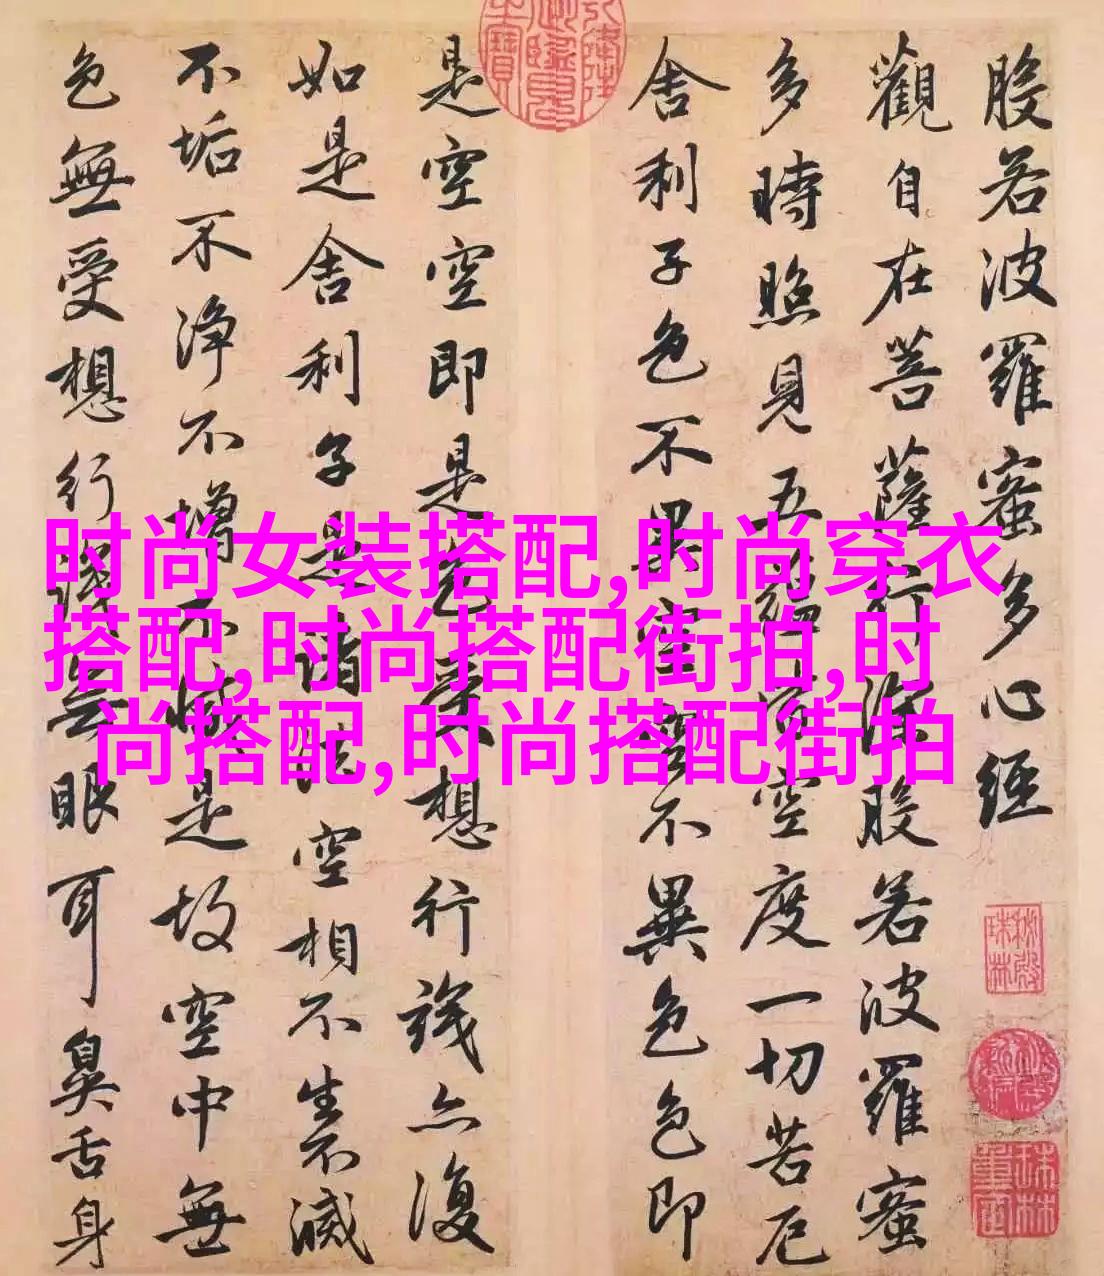 般若波羅蜜多心經
觀自在菩薩行深般若波羅蜜
多時照見五蘊皆空度一切苦厄
舍利子色不異空空不異色色即
是空空即是色受想行識亦復
如是舍利子是諸法空相不生不滅
不垢不淨不增不減是故空中無
色無受想行識無眼耳鼻舌身
时尚女装搭配,时尚穿衣
搭配,时尚搭配街拍,时
尚搭配,时尚搭配街拍
秘殿
珠林